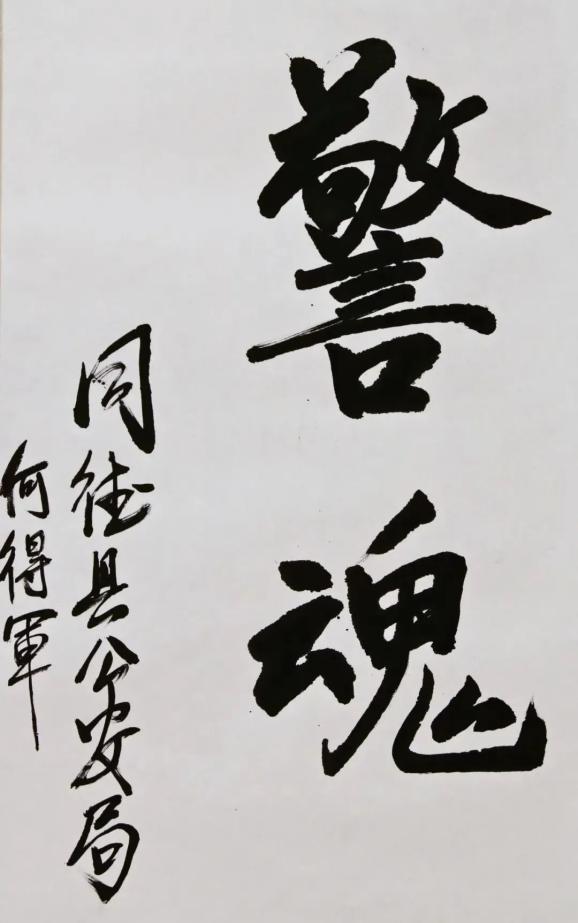 警魂
同德县公安局
何得軍